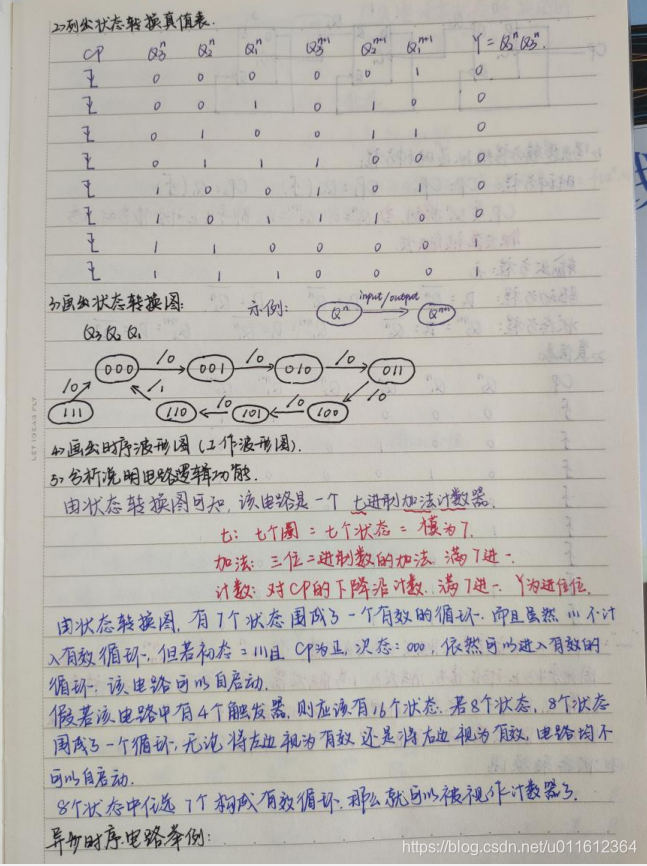 2>列出状态转换真值表.
CP Q₃ⁿ Q₂ⁿ Q₁ⁿ Q₃ⁿ⁺¹ Q₂ⁿ⁺¹ Q₁ⁿ⁺¹ Y=Q₃ⁿQ₂ⁿ.
0 0 0 0 0 1 0
0 0 1 0 1 0 0
0 1 0 0 1 1 0
0 1 1 1 0 0 0
1 0 0 1 0 1 0
1 0 1 1 1 0 0
1 1 0 0 0 0 1
1 1 1 0 0 0 1
3>画出状态转换图: 示例: Qⁿ input/output Qⁿ⁺¹
Q₃ Q₂ Q₁
000 /0 001 /0 010 /0 011
/0 /1 /0
111 110 /0 101 /0 100
4>画出时序波形图(工作波形图).
5>分析说明电路逻辑功能.
由状态转换图可知,该电路是一个七进制加法计数器.
七: 七个圈=七个状态=模为7.
加法: 三位二进制数的加法 满7进一.
计数: 对CP的下降沿计数. 满7进一. Y为进位位.
由状态转换图, 有7个状态围成了一个有效的循环. 而且虽然 111 不计
入有效循环, 但若初态=111且 CP为正, 次态: 000, 依然可以进入有效的
循环. 该电路可以自启动.
假若该电路中有4个触发器, 则应该有16个状态. 若8个状态, 8个状态
围成了一个循环, 无论将左边视为有效 还是将右边视为有效, 电路均不
可以自启动.
8个状态中任选7个构成有效循环. 那么就可以被视作计数器了.
异步时序电路举例:
LET IDEAS FLY
https://blog.csdn.net/u011612364